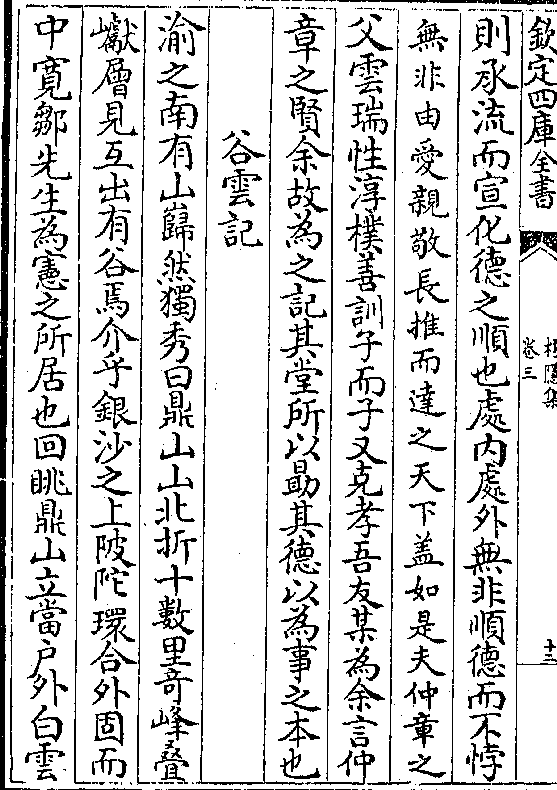 欽定四庫全書
卷三
十三
則承流而宣化德之順也處内處外無非順德而不悖
無非由愛親敬長推而達之天下盖如是夫仲章之
父雲瑞性淳樸善訓子而子又克孝吾友某為余言仲
章之賢余故為之記其堂所以勗其德以為事之本也
谷雲記
渝之南有山巋然獨秀曰鼎山山北折十數里竒峰疊
巘層見互出有谷焉介乎銀沙之上陂陀環合外固而
中寛鄒先生為憲之所居也回眺鼎山立當户外白雲